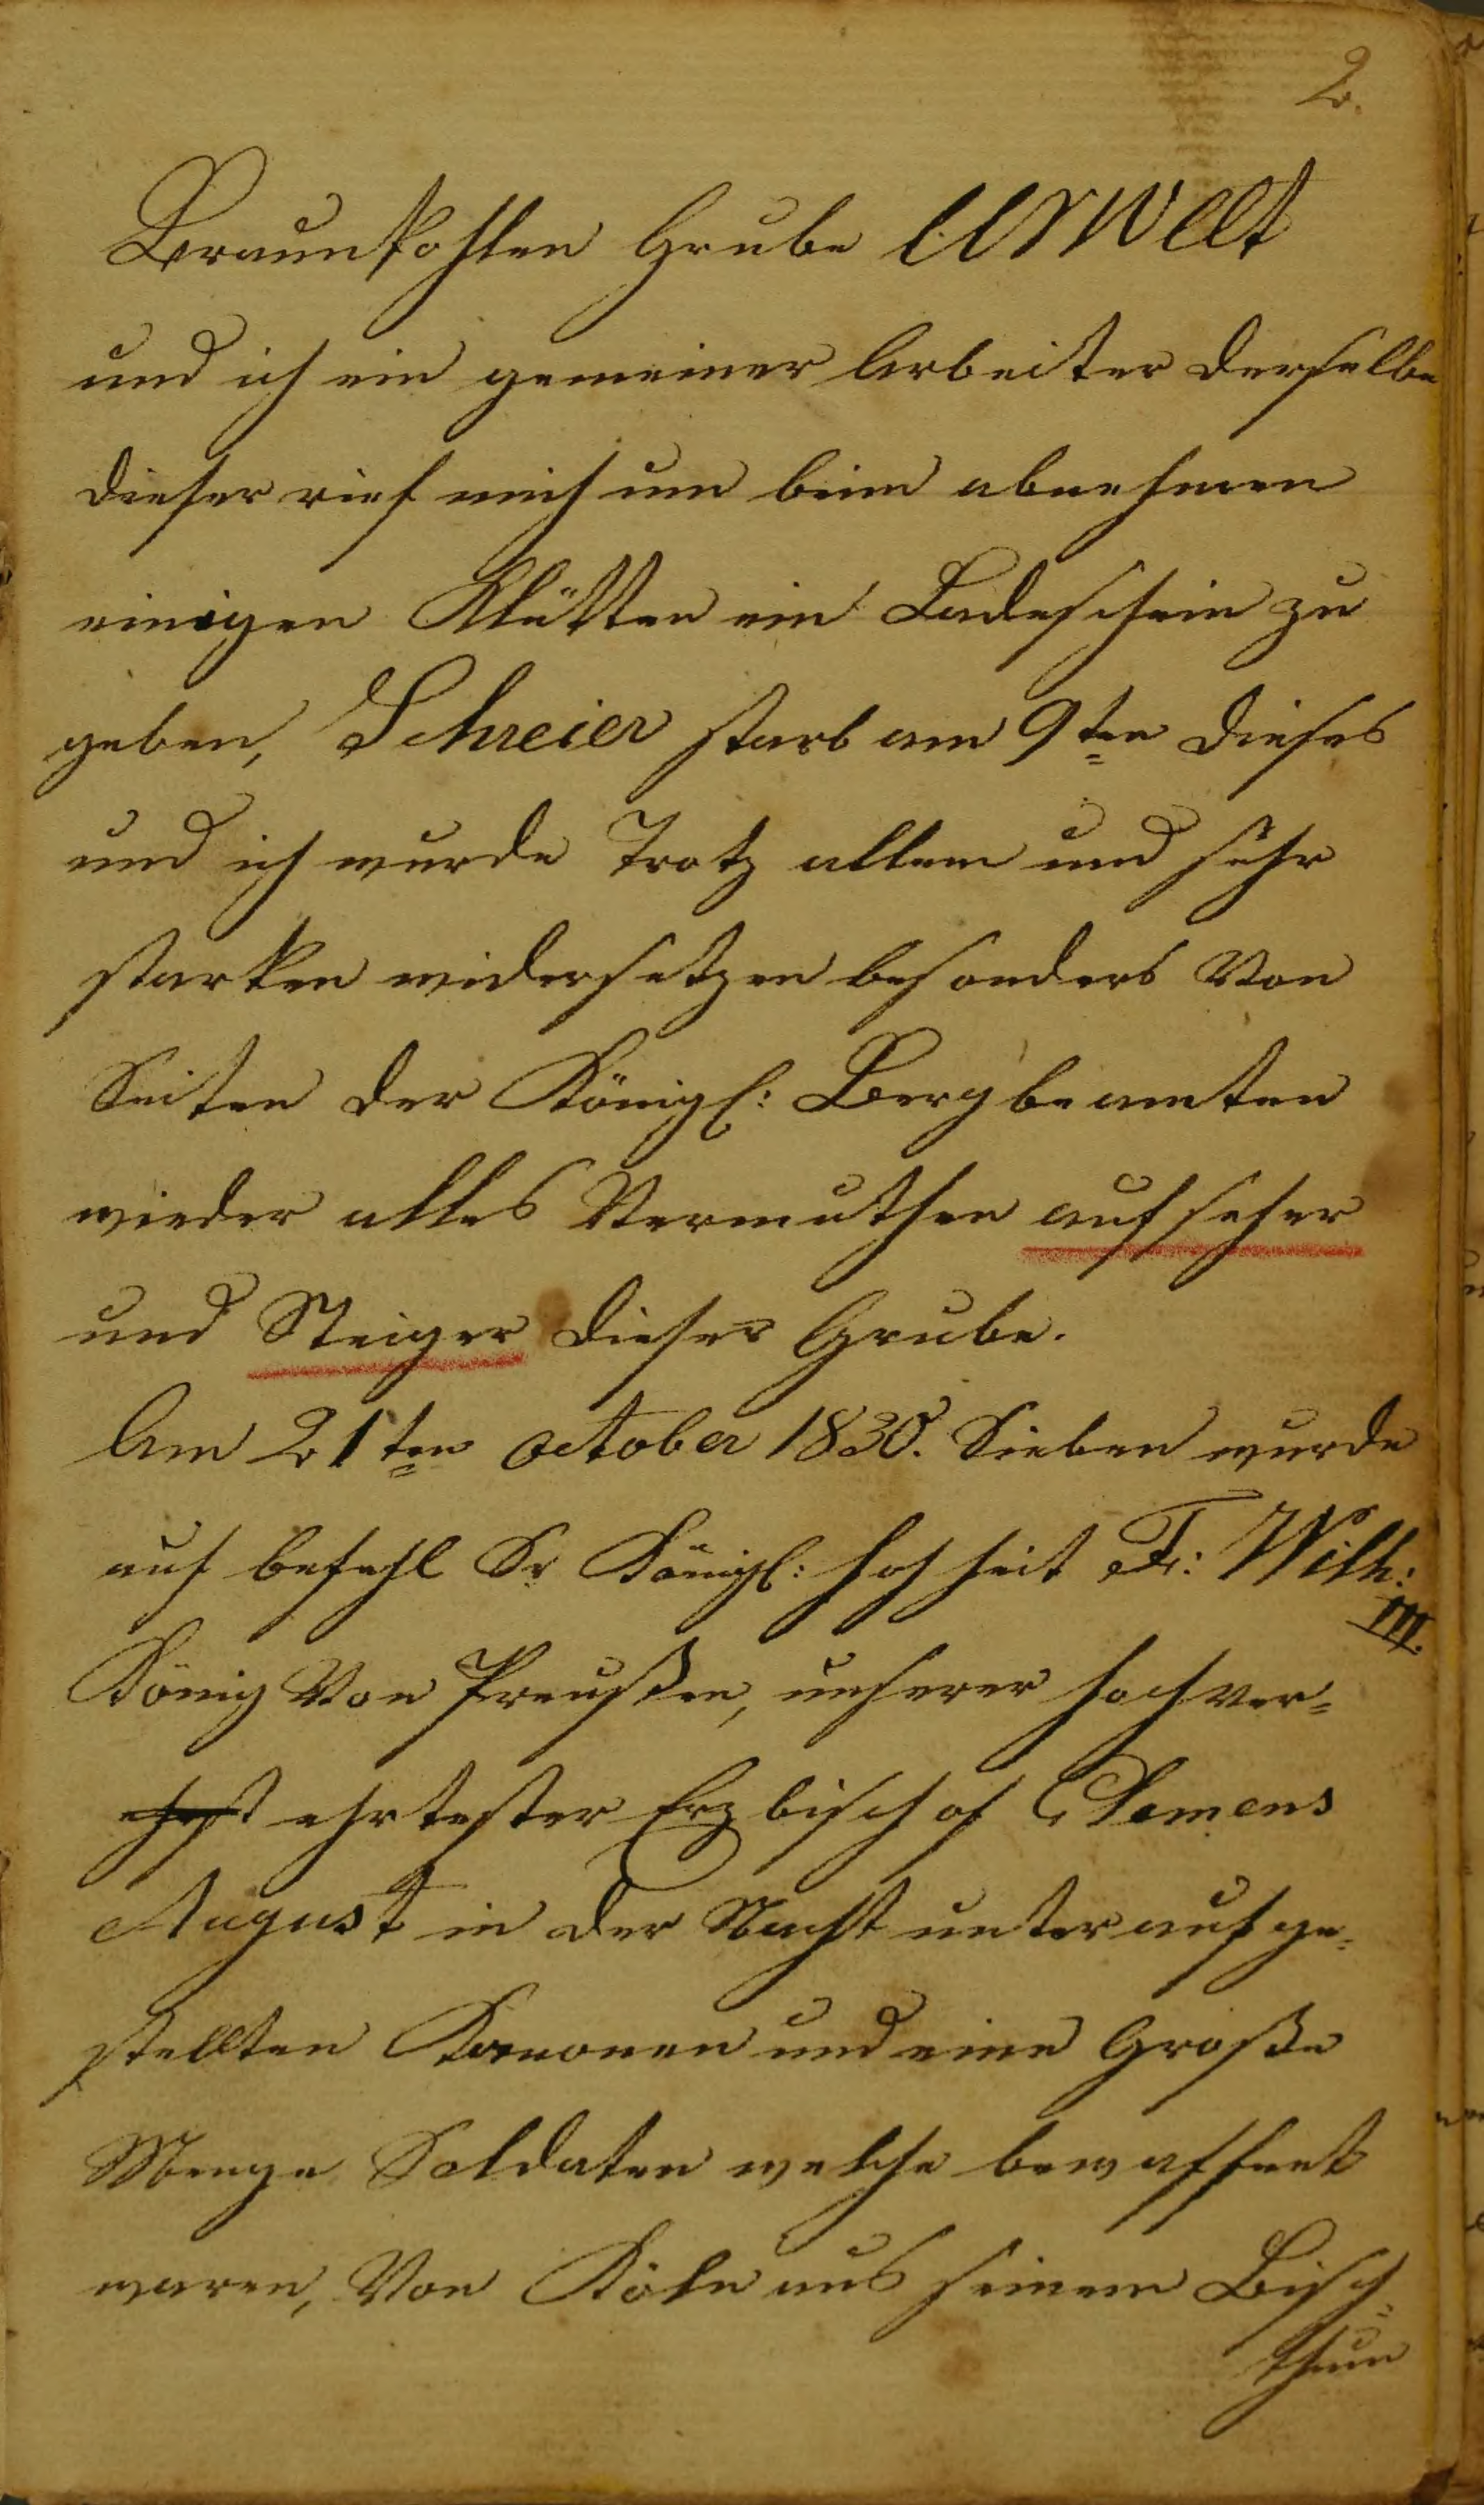 2.
Braunkohlen Grube Urwelt
und ich ein gemeiner Arbeiter derselbe
dieser rief mich um beim abnehmen
einigen Klütten ein Ladeschein zu
geben, Schreier starb am 9ten dieses
und ich wurde Trotz allem und sehr
starken widersetzen besonders Von
Seiten der Königl: Bergbeamten
wieder alles Vermuthen aufseher
und Steiger dieser Grube.
Am 21ten october 1830. Sieben wurde
auf befehl Sr Königl: hohheit Fr: Wilh:
III.
König Von Preußen, unserer hochver=
ehrtester Erzbischof Clemens
August in der Nacht unter aufge=
stellten Kanonen und eine Große
Menge Soldaten welche bewaffnet
waren, Von Köln aus seinem Bisch=
thum